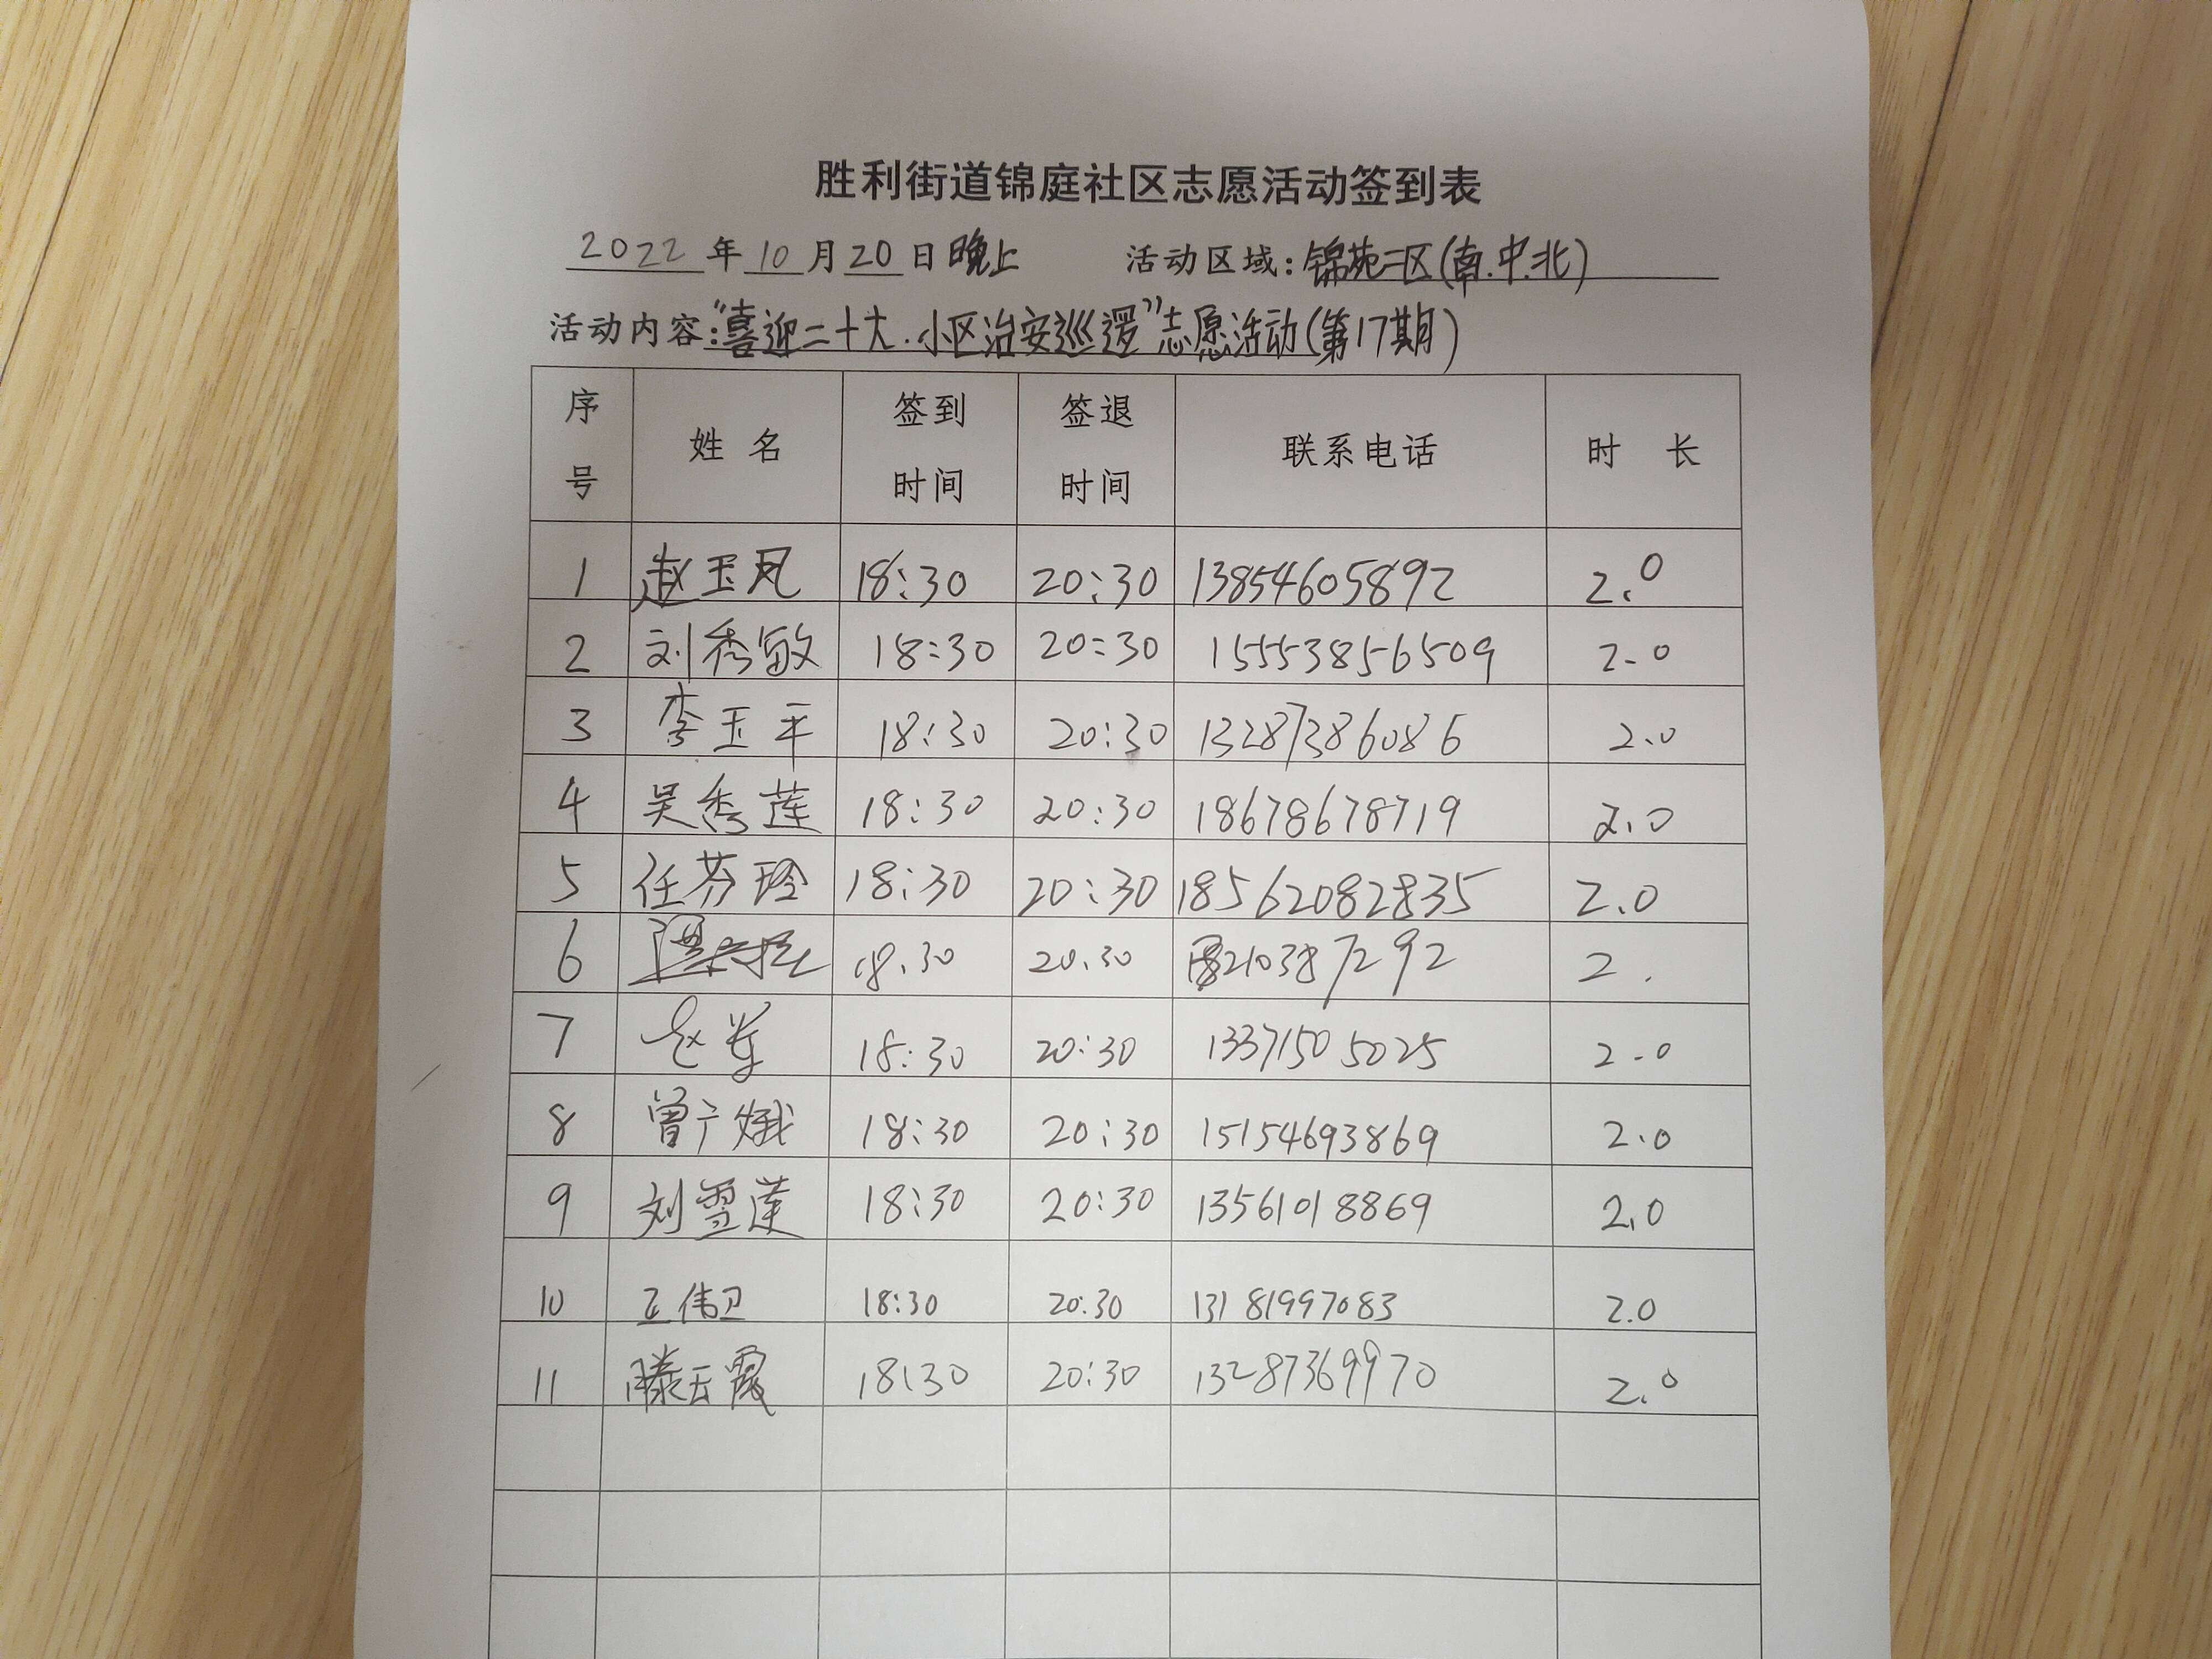 胜利街道锦庭社区志愿活动签到表
2022年10月20日晚上 活动区域:锦苑二区(南.中.北)
活动内容:“喜迎二十大.小区治安巡逻”志愿活动(第17期)
序号 姓名 签到时间 签退时间 联系电话 时长
1 赵玉凤 18:30 20:30 13854605892 2.0
2 刘秀敏 18:30 20:30 15553856509 2.0
3 李玉平 18:30 20:30 13287386086 2.0
4 吴秀莲 18:30 20:30 18678678719 2.0
5 任芬玲 18:30 20:30 18562082835 2.0
6 18.30 20.30 2.
7 18:30 20:30 13371505025 2.0
8 18:30 20:30 15154693869 2.0
9 刘雪莲 18:30 20:30 13561018869 2.0
10 王伟卫 18:30 20:30 13181997083 2.0
11 滕云霞 18:30 20:30 13287369970 2.0